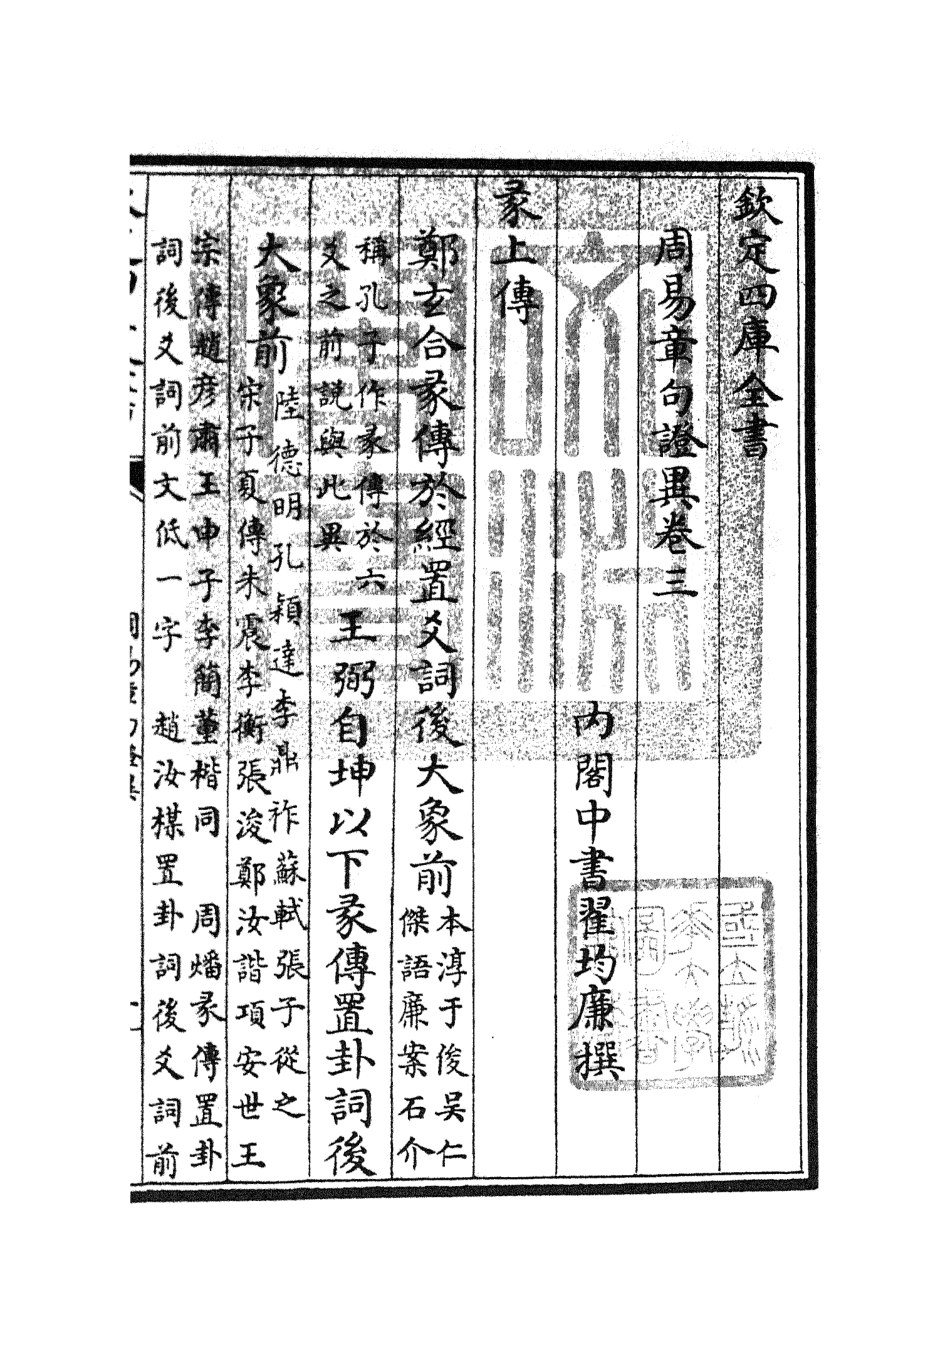 欽定四庫全書
周易章句證異卷三
内閣中書翟均廉撰
彖上傳
鄭玄合彖傳於經置爻詞後大象前本淳于俊吳仁
傑語廉案石介
稱孔子作彖傳於六
爻之前説與此異王弼自坤以下彖傳置卦詞後
大象前陸德明孔穎達李鼎祚蘇軾張子從之
宋子夏傳朱震李衡張浚鄭汝諧項安世王
宗傳趙彦肅王申子李簡董楷同　周燔彖傳置卦
詞後爻詞前文低一字　趙汝楳置卦詞後爻詞前